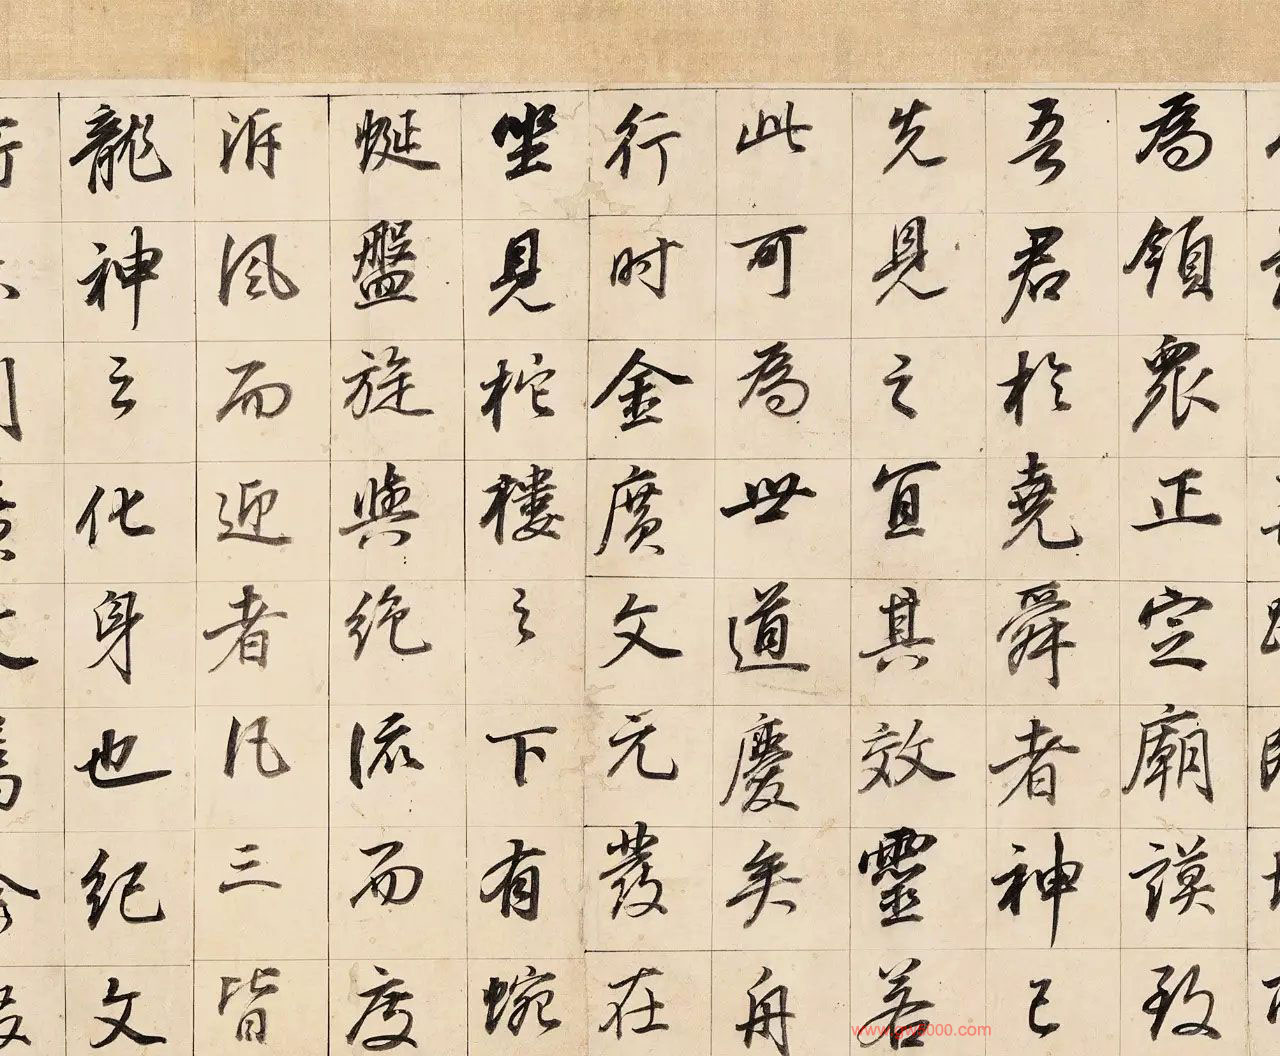 為領眾正定廟謨致
吾君於堯舜者神已
先見之宜其效靈若
此可為世道慶矣舟
行时金廣文元發在
坐見柁樓之下有蜿
蜒盤旋與絶流而度
泝風而迎者凡三皆
龍神之化身也紀文
www.
000.com